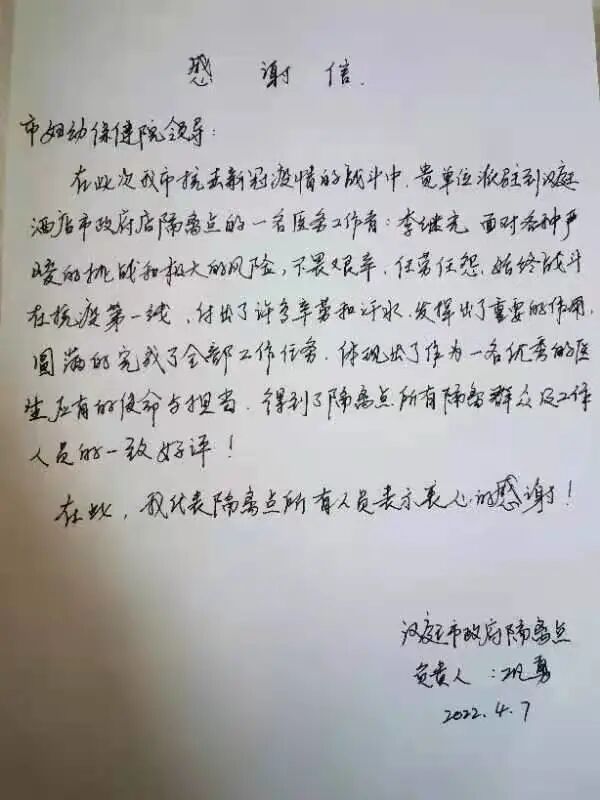 感谢信.
市妇幼保健院领导:
在此次我市抗击新冠疫情的战斗中,贵单位派驻到汉庭
酒店市政府店隔离点的一名医务工作者:李继光 面对各种严
峻的挑战和极大的风险,不畏艰辛、任劳任怨、始终战斗
在抗疫第一线、付出了许多辛劳和汗水、发挥出了重要的作用,
圆满的完成了全部工作任务、体现出了作为一名优秀的医
生应有的使命与担当、得到了隔离点所有隔离群众及工作
人员的一致好评!
在此,我代表隔离点所有人员表示衷心的感谢!
汉庭市政府隔离点
负责人:勇
2022.4.7